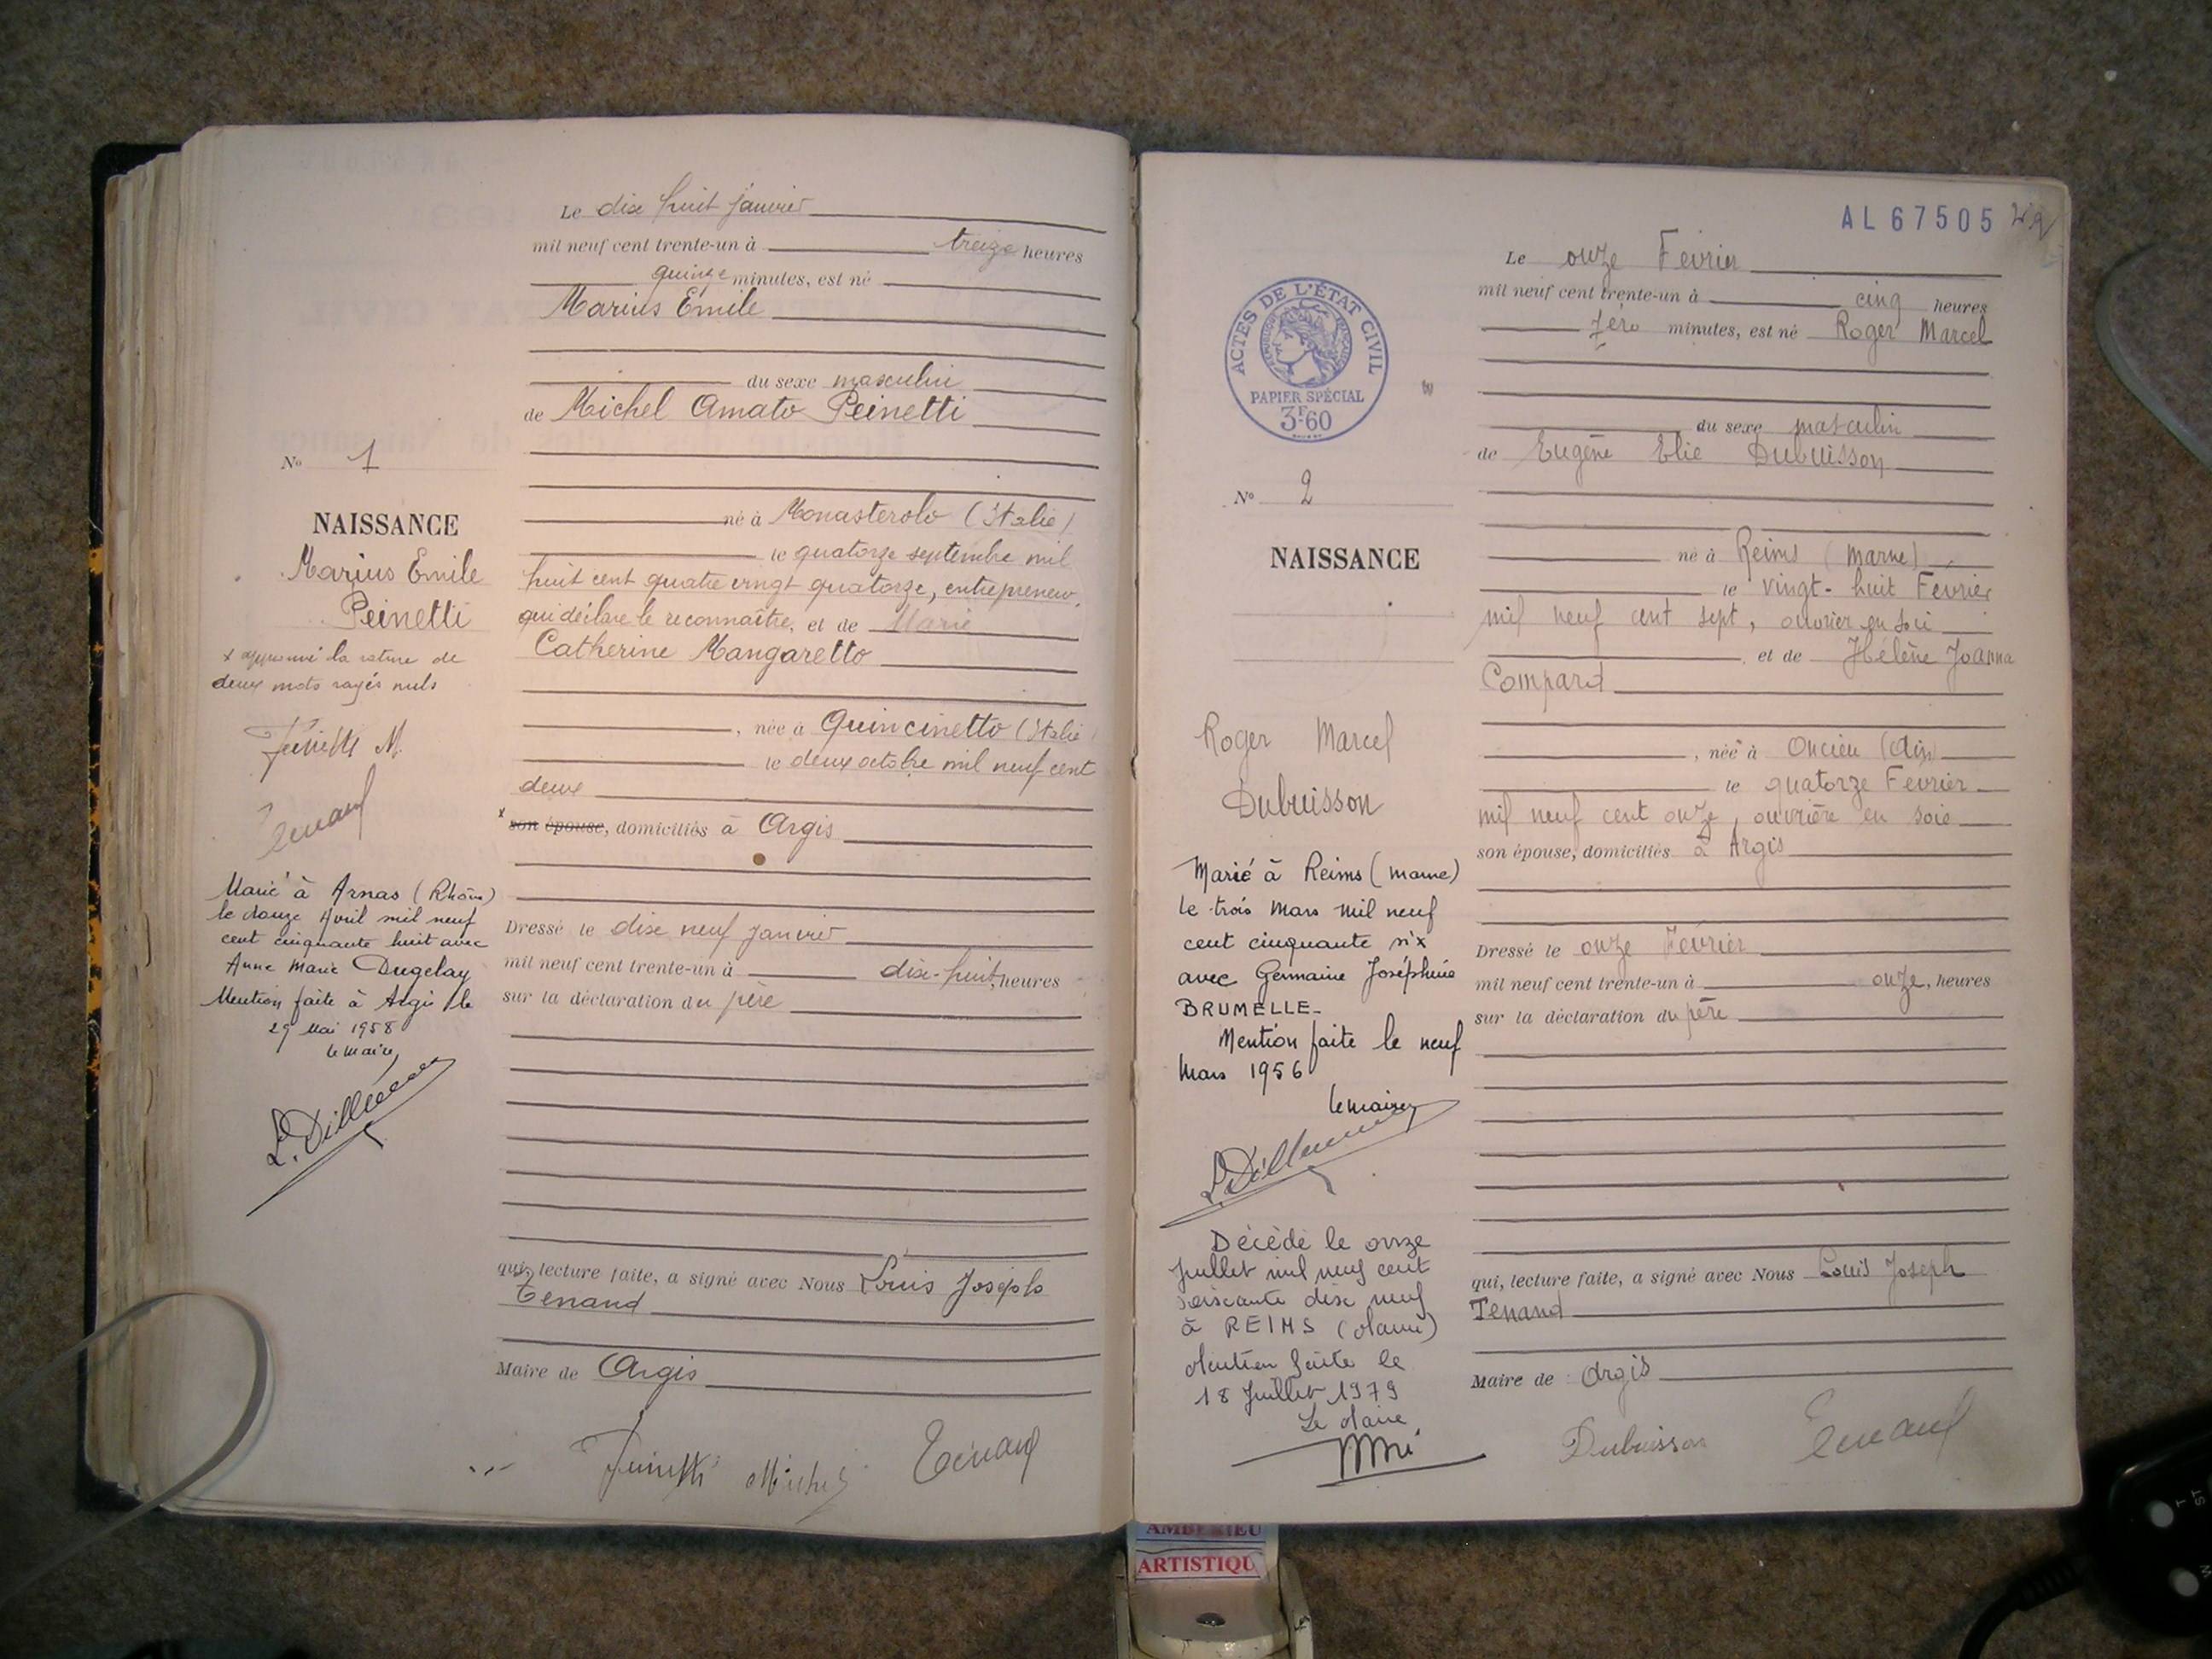 Le dix huit janvier
mil neuf cent trente-un à treize heures
quinze minutes, est né
Marius Emile
du sexe masculin
de Michel Amato Peinetti
né à Monasterolo (Italie)
le quatorze septembre mil
huit cent quatre vingt quatorze, entrepreneur,
qui déclare le reconnaître, et de Marie
Catherine Mangaretto
, née à Quincinetto (Italie)
le deux octobre mil neuf cent
deux
x son épouse, domiciliés à Argis
Dressé le dix neuf janvier
mil neuf cent trente-un à dix-huit, heures
sur la déclaration du père
qui, lecture faite, a signé avec Nous Louis Joseph
Tenand
Maire de Argis
Peinetti Michel Tenand
No 1
NAISSANCE
Marius Emile
Peinetti
x approuvé la rature de
deux mots rayés nuls
Peinetti M.
Tenand
Marié à Arnas (Rhône)
le douze Avril mil neuf
cent cinquante huit avec
Anne Marie Dugelay
Mention faite à Argis le
29 Mai 1958
le maire,
AL 67505
Le onze Février
mil neuf cent trente-un à cinq heures
zéro minutes, est né Roger Marcel
du sexe masculin
de Eugène Elie Dubuisson
né à Reims (Marne)
le vingt-huit Février
mil neuf cent sept, ouvrier en soie
, et de Hélène Joanna
Compard
, née à Oncieu (Ain)
le quatorze Février
mil neuf cent onze, ouvrière en soie
son épouse, domiciliés à Argis
Dressé le onze Février
mil neuf cent trente-un à onze, heures
sur la déclaration du père
qui, lecture faite, a signé avec Nous Louis Joseph
Tenand
Maire de Argis
Dubuisson Tenand
ACTES DE L'ÉTAT CIVIL
RÉPUBLIQUE FRANÇAISE
PAPIER SPÉCIAL
3F60
No 2
NAISSANCE
Roger Marcel
Dubuisson
Marié à Reims (Marne)
le trois Mars mil neuf
cent cinquante six
avec Germaine Joséphine
BRUMELLE_
Mention faite le neuf
Mars 1956
le maire,
Décédé le onze
Juillet mil neuf cent
soixante dix neuf
à REIMS (Marne)
Mention faite le
18 Juillet 1979
Le Maire
AMBERIEU
ARTISTIQU